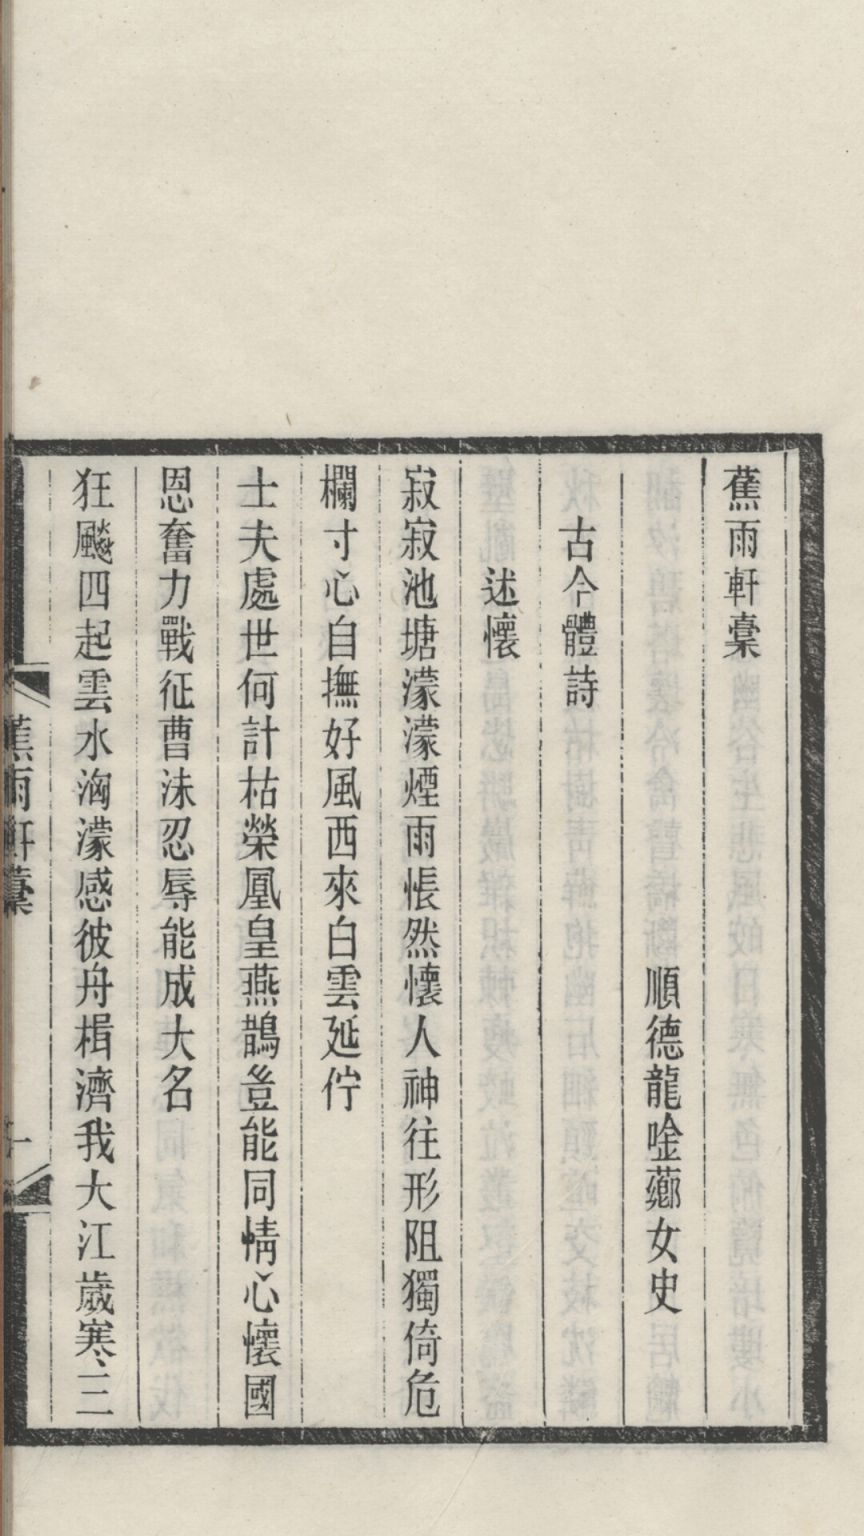 蕉雨軒稾
順德龍唫薌女史
古今體詩
述懷
寂寂池塘濛濛煙雨悵然懷人神往形阻獨倚危
欄寸心自撫好風西來白雲延佇
士夫處世何計枯榮凰皇燕鵲豈能同情心懷國
恩奮力戰征曹沬忍辱能成大名
狂飈四起雲水洶濛感彼舟楫濟我大江歲寒三
蕉雨軒稾
一